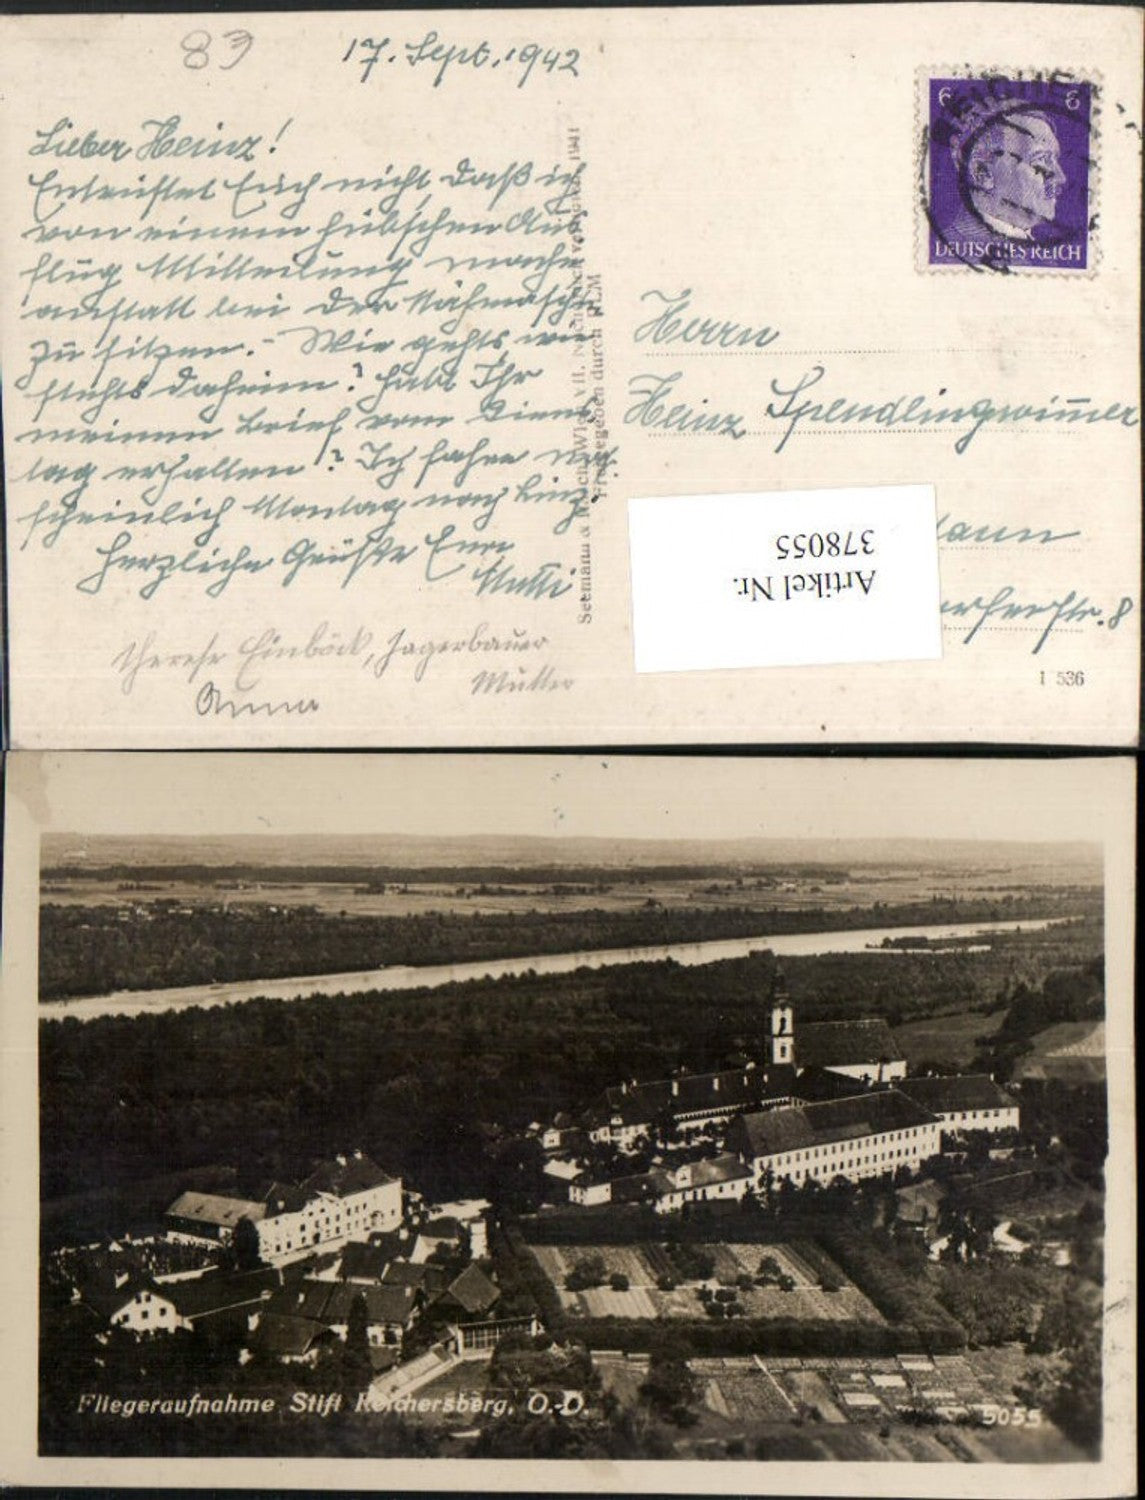 83
17. Sept. 1942
Lieber Heinz!
Entrüstet Euch nicht, daß ich
von einem hübschen Aus-
flug Mitteilung mache
anstatt bei der Nähmasch.
zu sitzen.- Wie gehts wie
stehts daheim? Habt Ihr
meinen Brief vom Diens-
tag erhalten? Ich fahre wahr-
scheinlich Montag nach Linz.
Herzliche Grüße Eure
Mutti
Therese Einböck, Jagerbauer
Mutter
Anna
Seemann &
Wien VII,
1941
Freigegeben durch RLM
6 6
REICHER
DEUTSCHES REICH
Herrn
Heinz Spendlingwimmer
Artikel Nr.
378055
str. 8
I 536
Fliegeraufnahme Stift Reichersberg, O.-D.
5055